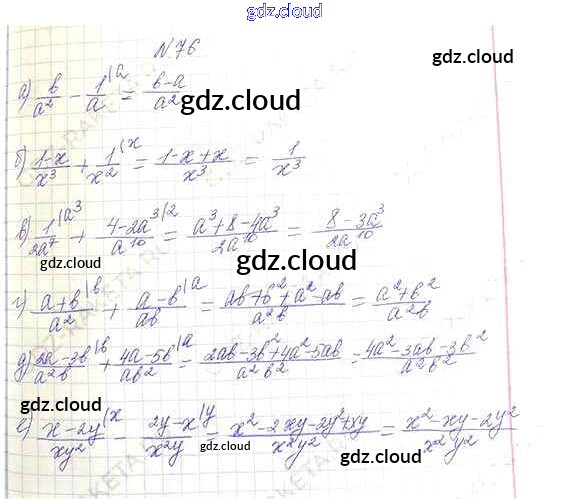 gdz.cloud
N 76
gdz.cloud
а) b/a² - 1/a (a = b-a/a²
gdz.cloud
б) 1-x/x³ + 1/x² (x = 1-x+x/x³ = 1/x³
в) 1/2a⁷ (a³ + 4-2a³/a¹⁰ (2 = a³+8-4a³/2a¹⁰ = 8-3a³/2a¹⁰
gdz.cloud
gdz.cloud
г) a+b/a² (b + a-b/ab (a = ab+b²+a²-ab/a²b = a²+b²/a²b
gdz.cloud
д) 2a-3b/a²b (b + 4a-5b/ab² (a = 2ab-3b²+4a²-5ab/a²b² = 4a²-3ab-3b²/a²b²
gdz.cloud
gdz.cloud
е) x-2y/xy² (x - 2y-x/x²y (y = x²-2xy-2y²+xy/x²y² = x²-xy-2y²/x²y²
gdz.cloud
gdz.cloud